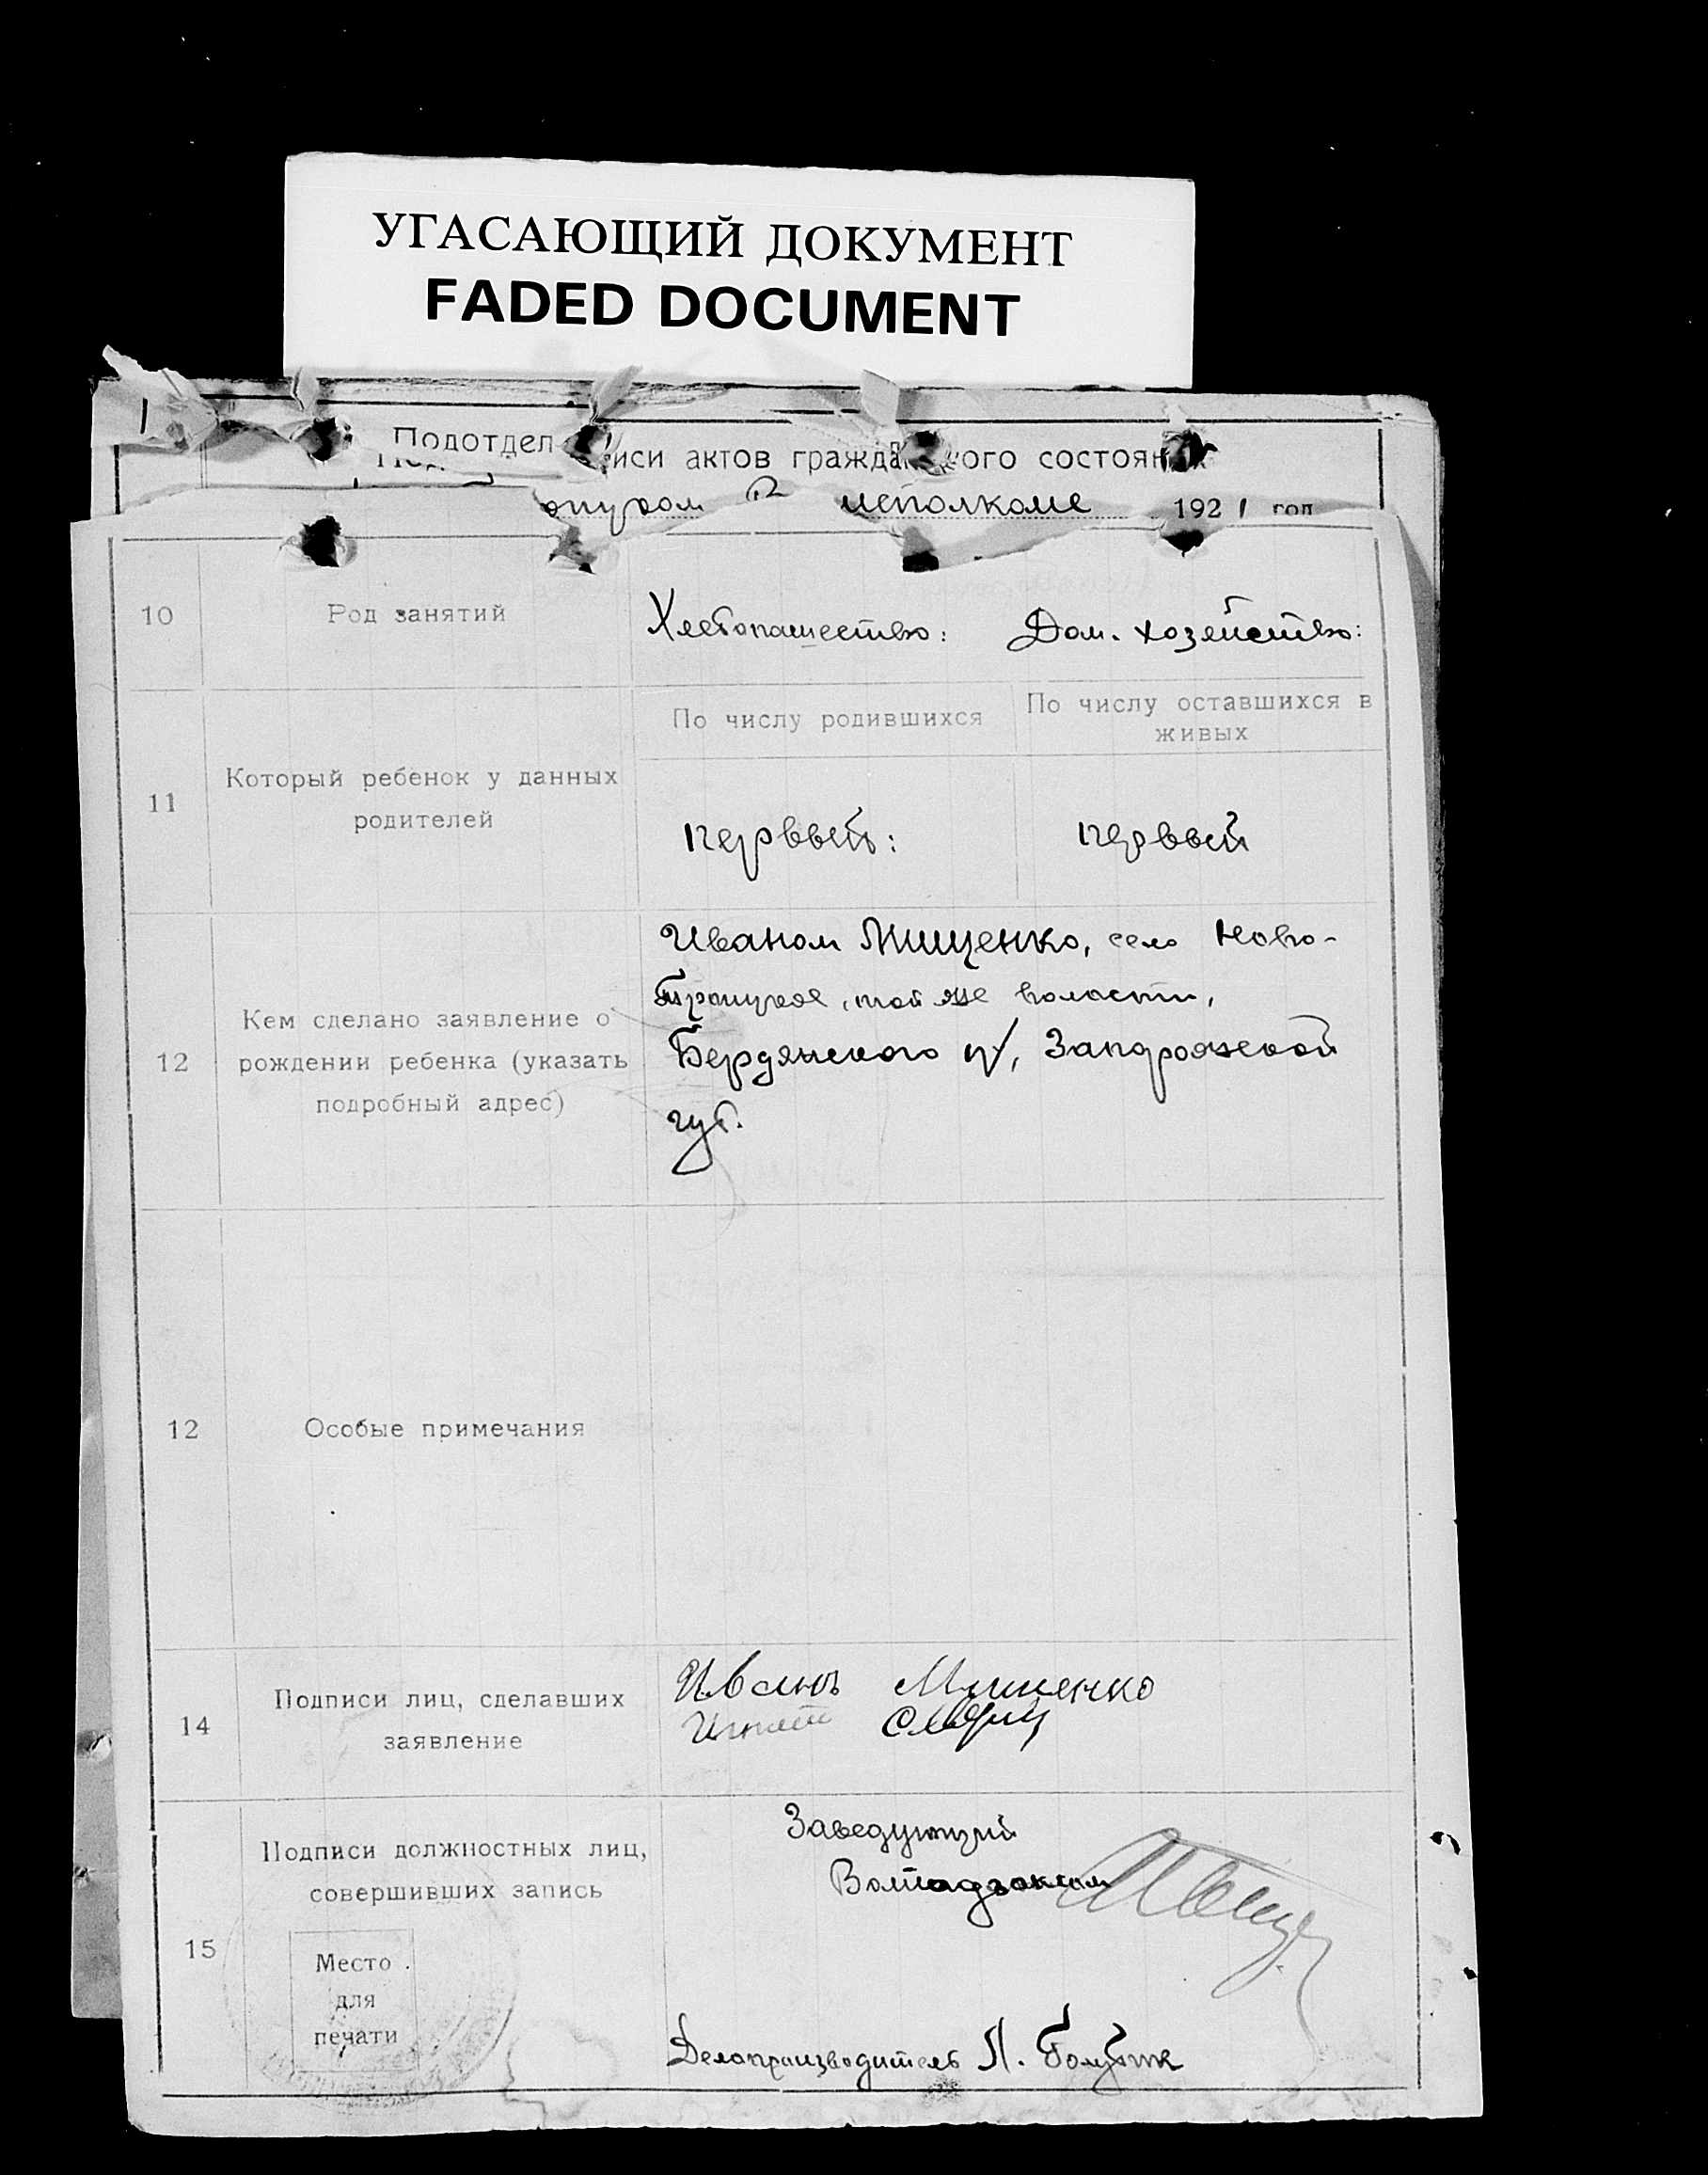 УГАСАЮЩИЙ ДОКУМЕНТ
FADED DOCUMENT
Подотдел
иси актов гражда ого состоя
исполкоме 1921 год
10 Род занятий Хлебопашество: Дом. хозяйство:
По числу родившихся По числу оставшихся в живых
11 Который ребенок у данных
родителей
первый: первый
12 Кем сделано заявление о
рождении ребенка (указать
подробный адрес)
Иваном Мищенко, село Ново-
Троицкое, той же волости,
Бердянского у, Запорожской
губ.
12 Особые примечания
14 Подписи лиц, сделавших
заявление
Иванъ Мищенко
15 Подписи должностных лиц,
совершивших запись
Место
для
печати
Заведующий
Делопроизводитель